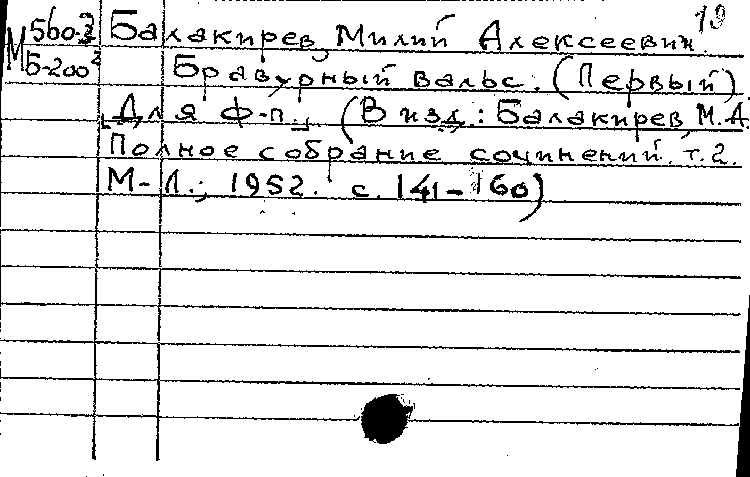 19
М 560-3
Б-200²
Балакирев, Милий Алексеевич.
Бравурный вальс. (Первый).
[Для ф-п.] (В изд.: Балакирев, М.А.
Полное собрание сочинений. т.2.
М-Л., 1952. с. 141-160)